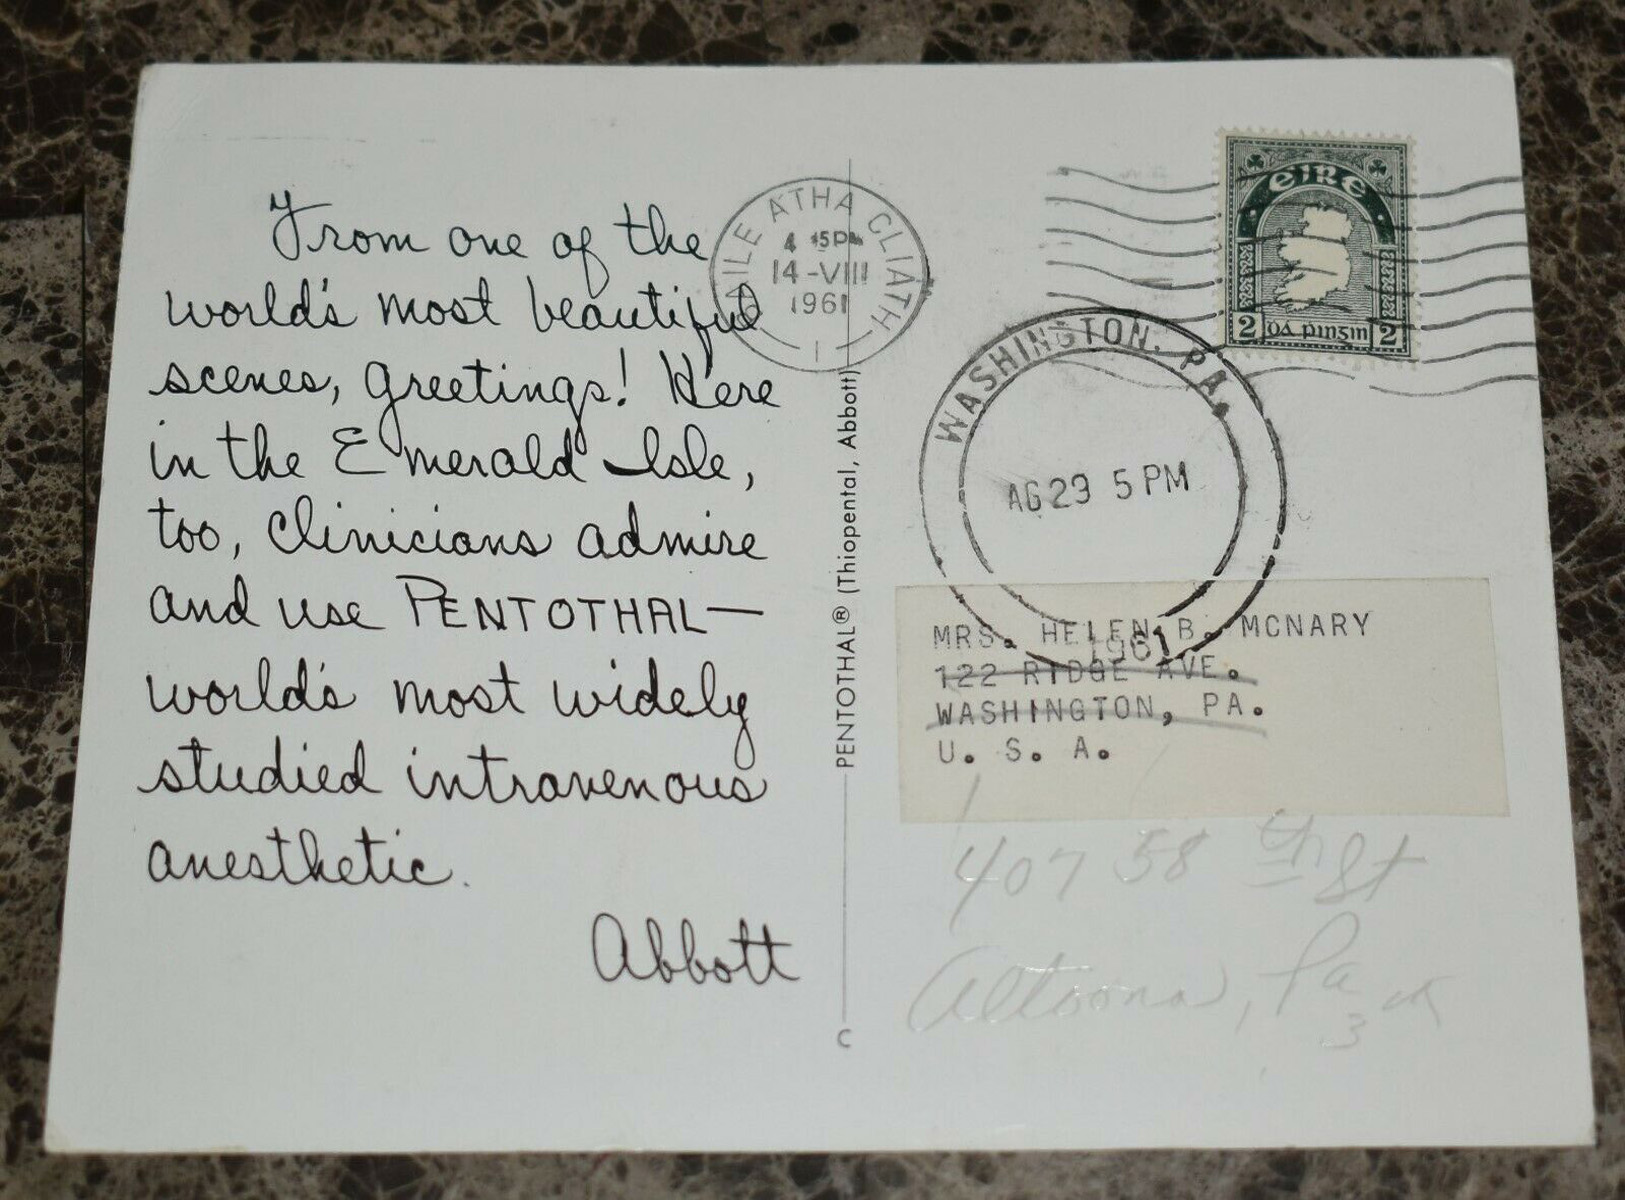 From one of the
world's most beautiful
scenes, greetings! Here
in the Emerald Isle,
too, clinicians admire
and use PENTOTHAL—
world's most widely
studied intravenous
anesthetic.
Abbott
PENTOTHAL® (Thiopental, Abbott)
C
BAILE ATHA CLIATH
4 15PM
14-VIII
1961
1
éire
2 dá pinġin 2
WASHINGTON, PA.
AG 29 5 PM
1961
MRS. HELEN B. MCNARY
122 RIDGE AVE.
WASHINGTON, PA.
U. S. A.
407 58th St
Altoona, Pa
3